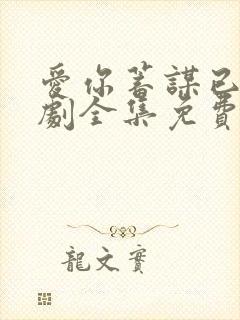 愛你蓄謀已
劇全集免費
龍文實